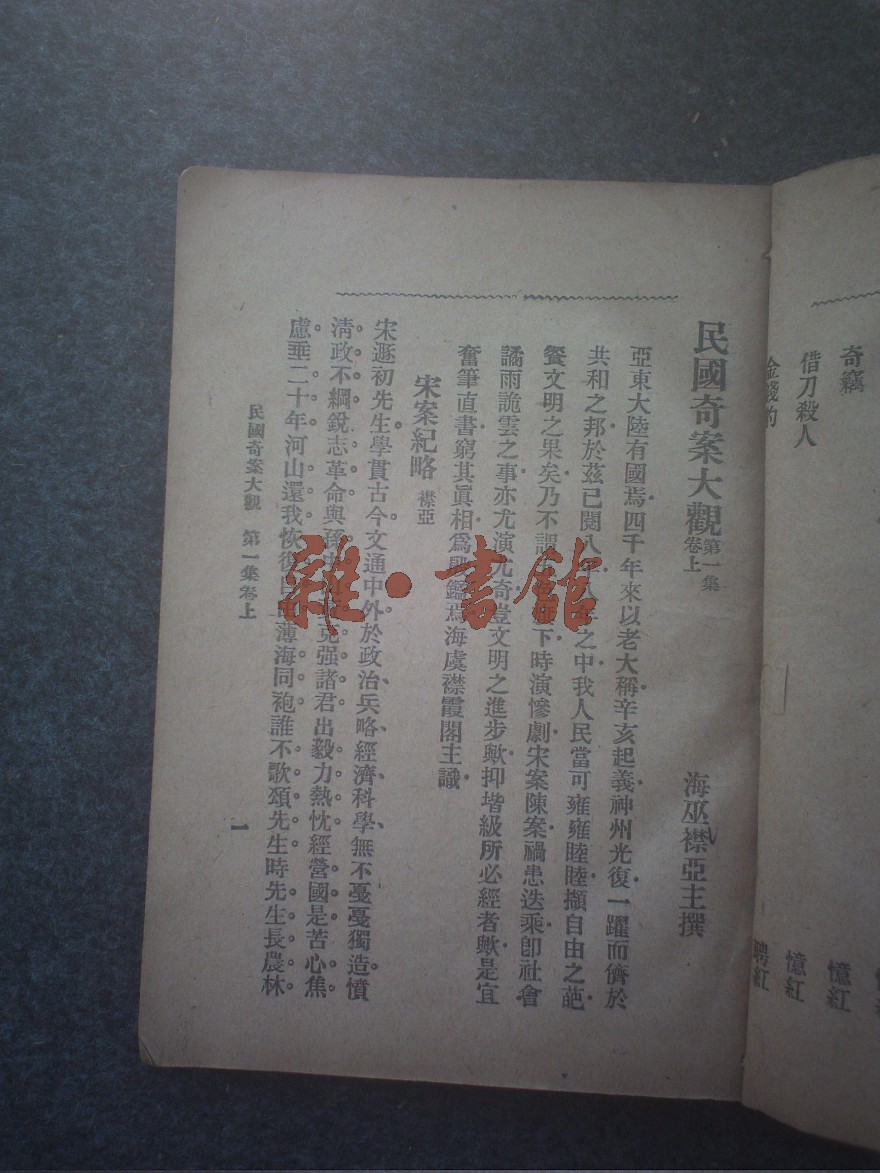 奇竊
借刀殺人
金錢的
憶紅
憶紅
聘紅
民國奇案大觀 第一集 卷上
海巫 襟亞主撰
亞東大陸有國焉四千年來以老大稱辛亥起義神州光復一躍而儕於
共和之邦於茲已閱八年八年之中我人民當可雍雍睦睦擷自由之葩
餐文明之果矣乃不謂 下時演慘劇宋案陳案禍患迭乘卽社會
譎雨詭雲之事亦尤演尤奇豈文明之進步歟抑堦級所必經者歟是宜
奮筆直書窮其眞相爲 鑑焉海虞襟霞閣主識
宋案紀略 襟亞
宋遯初先生學貫古今文通中外於政治、兵略、經濟科學、無不戞戞獨造憤
淸政不綱銳志革命與孫 克强諸君出毅力熱忱經營國是苦心焦
慮垂二十年河山還我恢復自由薄海同袍誰不歌頌先生時先生長農林
民國奇案大觀 第一集卷上
一
雜·書館